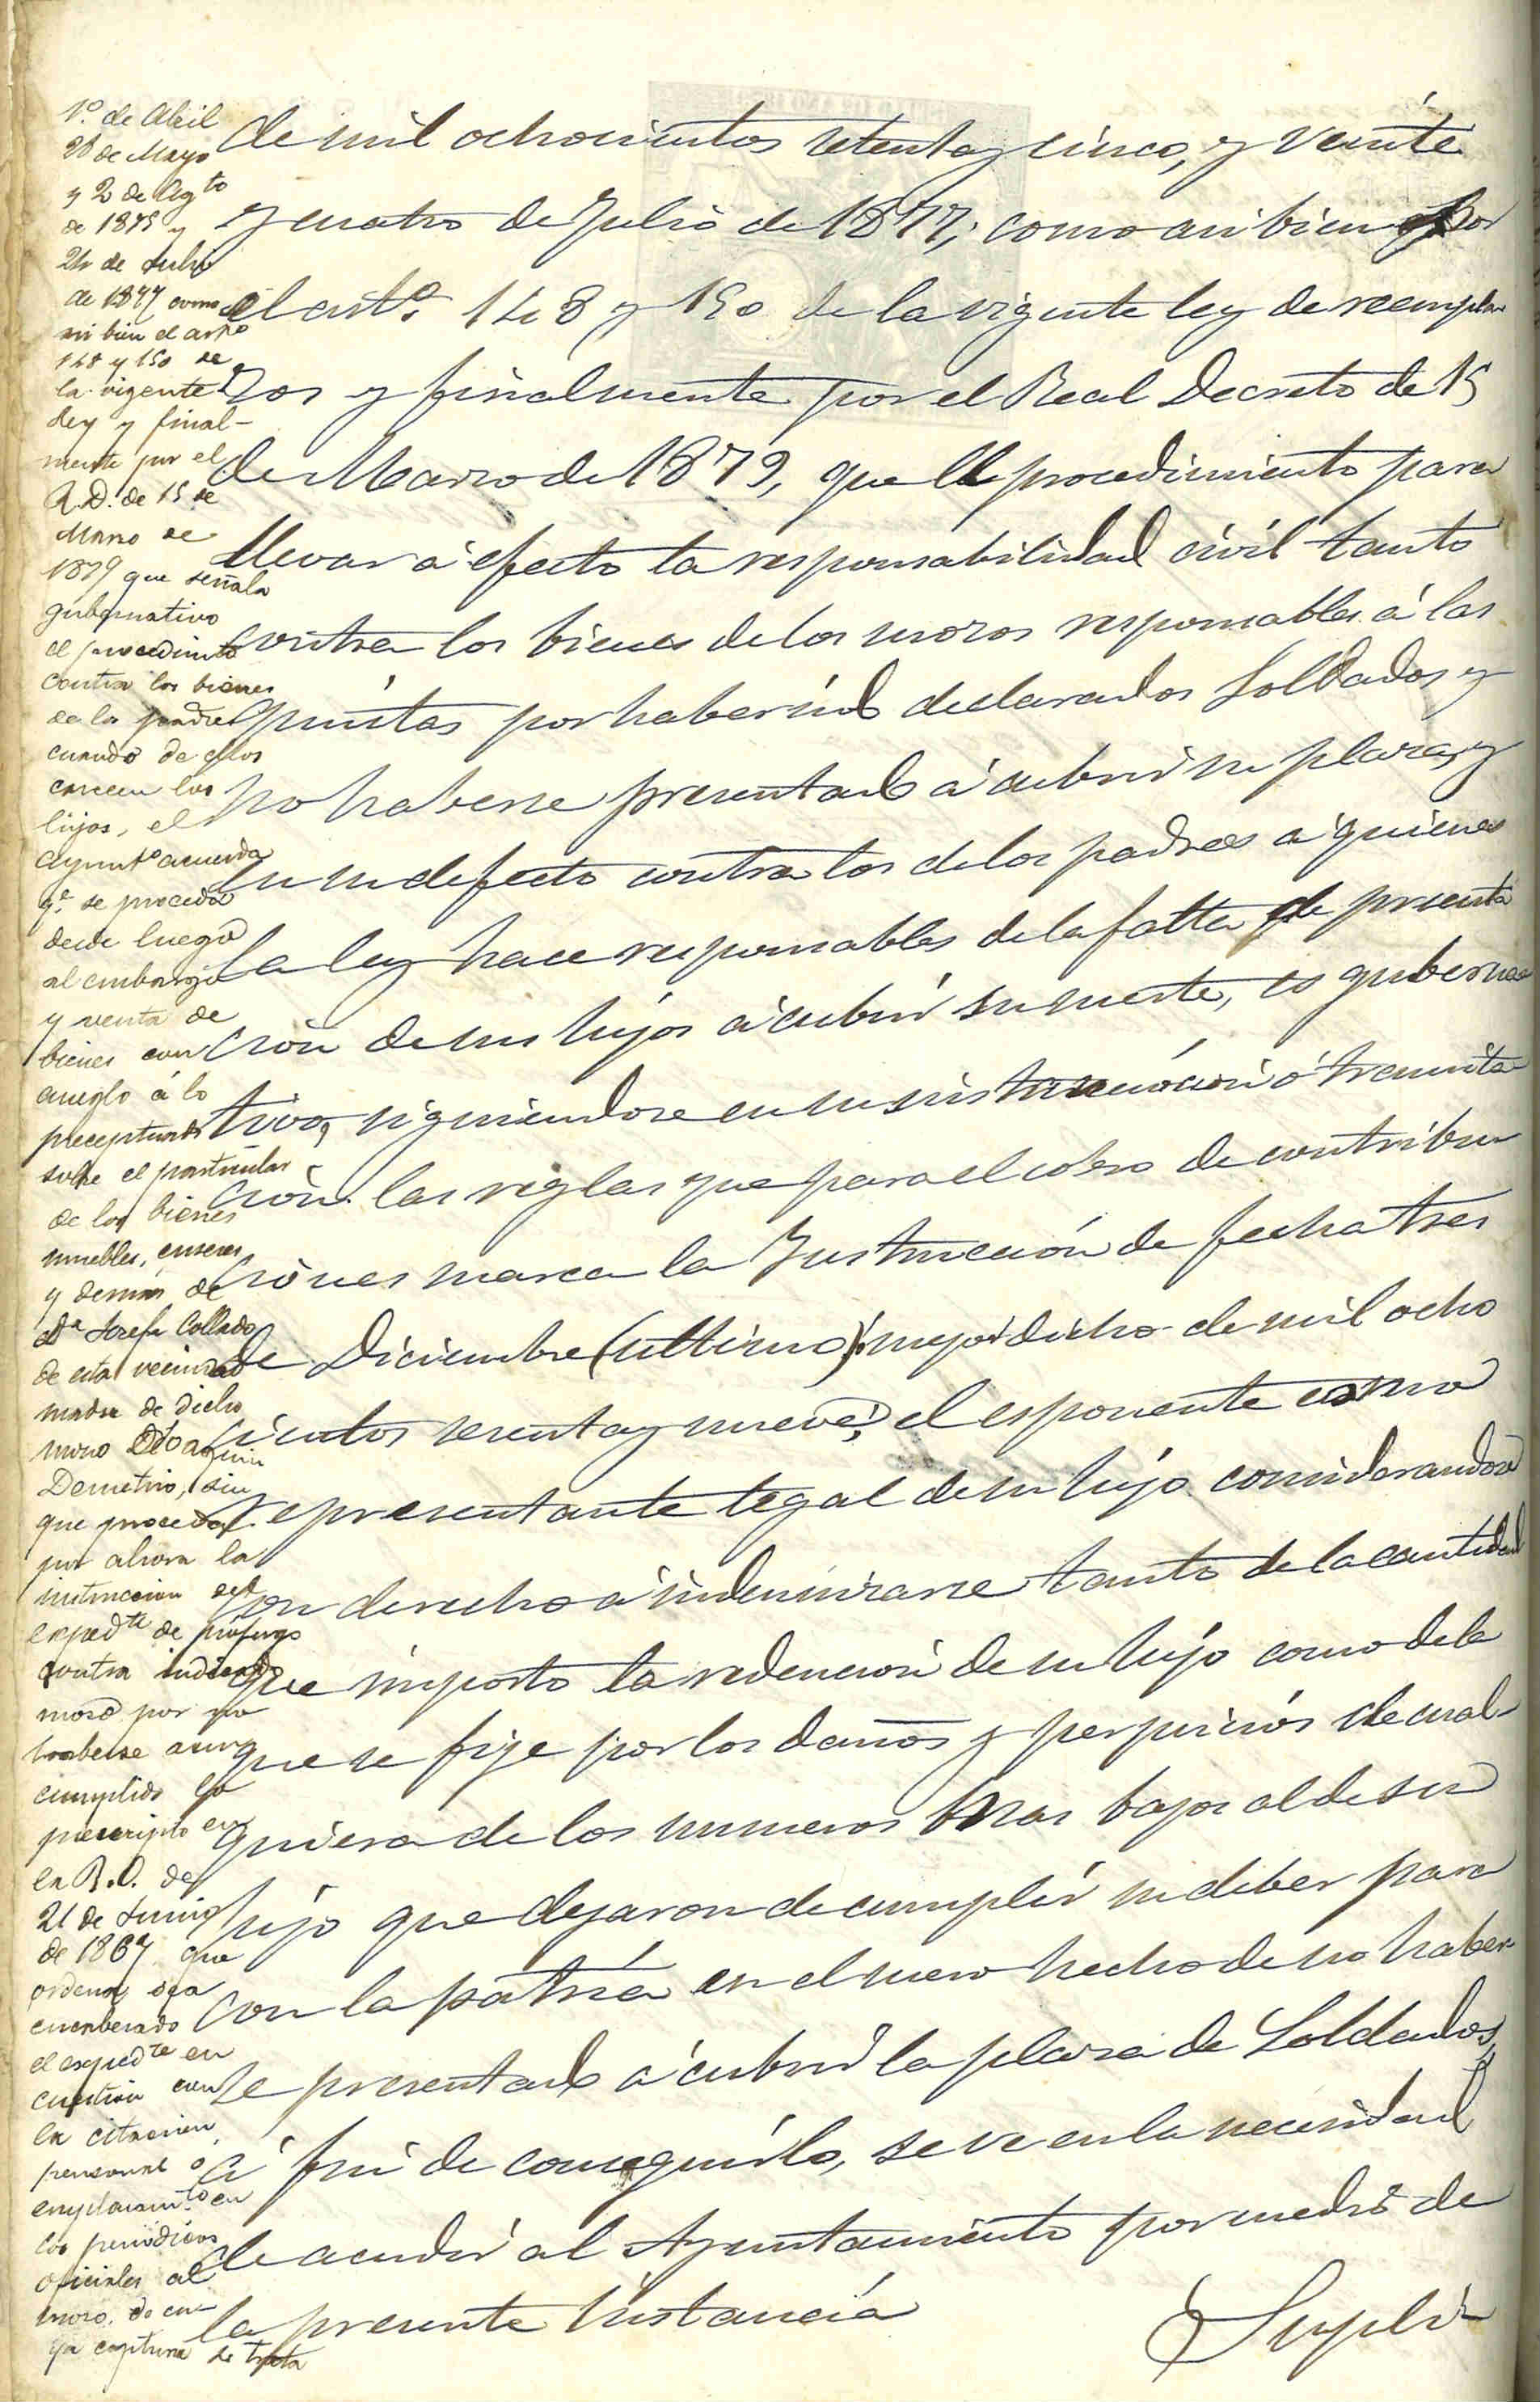 1.º de Abril
28 de Mayo
y 2 de Agto
de 1875 y
24 de Julio
de 1877 como
asi bien el arto
148 y 150 de
la vigente
Ley y final-
mente por el
R.D. de 15 de
Marzo de
1879 que señala
gubernativo
el procedimto
contra los bienes
de los padres
cuando de ellos
carecen los
hijos, el
Ayuntº acuerda
q.e se proceda
desde luego
al embargo
y venta de
bienes con
arreglo á lo
preceptuado
sobre el particular
de los bienes
muebles, enseres
y demas de
Dª Josefa Collado
de esta vecindad
madre de dicho
mozo Joaquin
Demetrio, sin
que proceda
por ahora la
instruccion del
expedte de prófugo
contra indicado
mozo por no
haberse aun
cumplido lo
prescripto en
la R.O. de
21 de Junio
de 1867 que
ordena sea
encaberado
el expedte en
cuestion con
la citacion
personal o
emplazamto en
los periódicos
oficiales al
mozo, de cu-
ya captura se trata
de mil ochocientos setenta y cinco, y veinte
y cuatro de Julio de 1877; como asi bien por
el artº. 148 y 150 de la vigente ley de reempla
zos y finalmente por el Real Decreto de 15
de Marzo de 1879, que el procedimiento para
llevar á efecto la responsabilidad civil tanto
contra los bienes de los mozos responsables á las
quintas por haber sido declarados Soldados y
no haberse presentado á cubrir su plaza, y
en su defecto contra los de los padres a quienes
la ley hace responsables de la falta de presenta
ción de sus hijos á cubrir su suerte, es guberna
tivo, siguiendose en su sustanciación ó tramita
ción las reglas que para el cobro de contribu
ciones marca la Instrucción de fecha tres
de Diciembre (ultimo) mejor dicho de mil ocho
cientos sesenta y nueve; el esponente como
representante legal de su hijo considerandose
con derecho a indemnizarse tanto de la cantidad
que importo la redención de su hijo como de la
que se fije por los daños y perjuicios de cual-
quiera de los numeros mas bajos al de su
hijo que dejaron de cumplir su deber para
con la pátria en el mero hecho de no haber-
se presentado á cubrir la plaza de Soldados,
á fin de conseguirlo, se ve en la necesidad
de acudir al Ayuntamiento por medio de
la presente instancia
Suplica